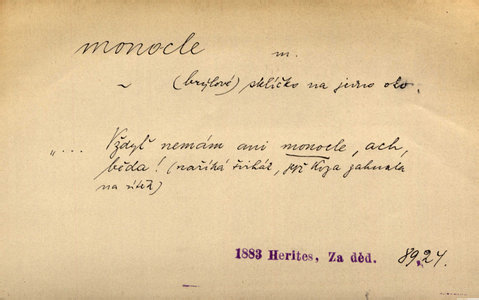 monocle m.
~ (brýlové) sklíčko na jedno oko.
„... Vždyť nemám ani monocle, ach,
běda! (naříká švihák, jejž Kyza zahnala
na útěk)
1883 Herites, Za děd. 89,24.